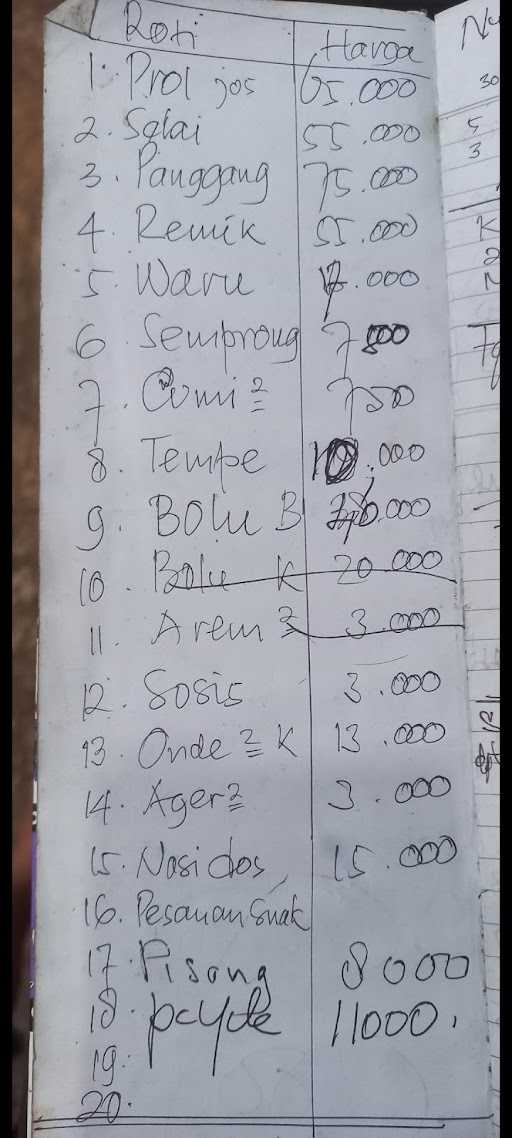 Roti Harga
1. Prol jos 65.000
2. Selai 55.000
3. Panggang 75.000
4. Remik 55.000
5. Waru .000
6. Semprong 7
7. Cumi 2 = 750
8. Tempe .000
9. BOLU B .000
10. Bolu K 20.000
11. Arem 2 = 3.000
12. Sosis 3.000
13. Onde 2 = K 13.000
14. Ager 2 = 3.000
15. Nasi dos 15.000
16. Pesanan Snak
17. Pisang 8000
18. peyek 11000.
19.
20.
30
5
3
K
2